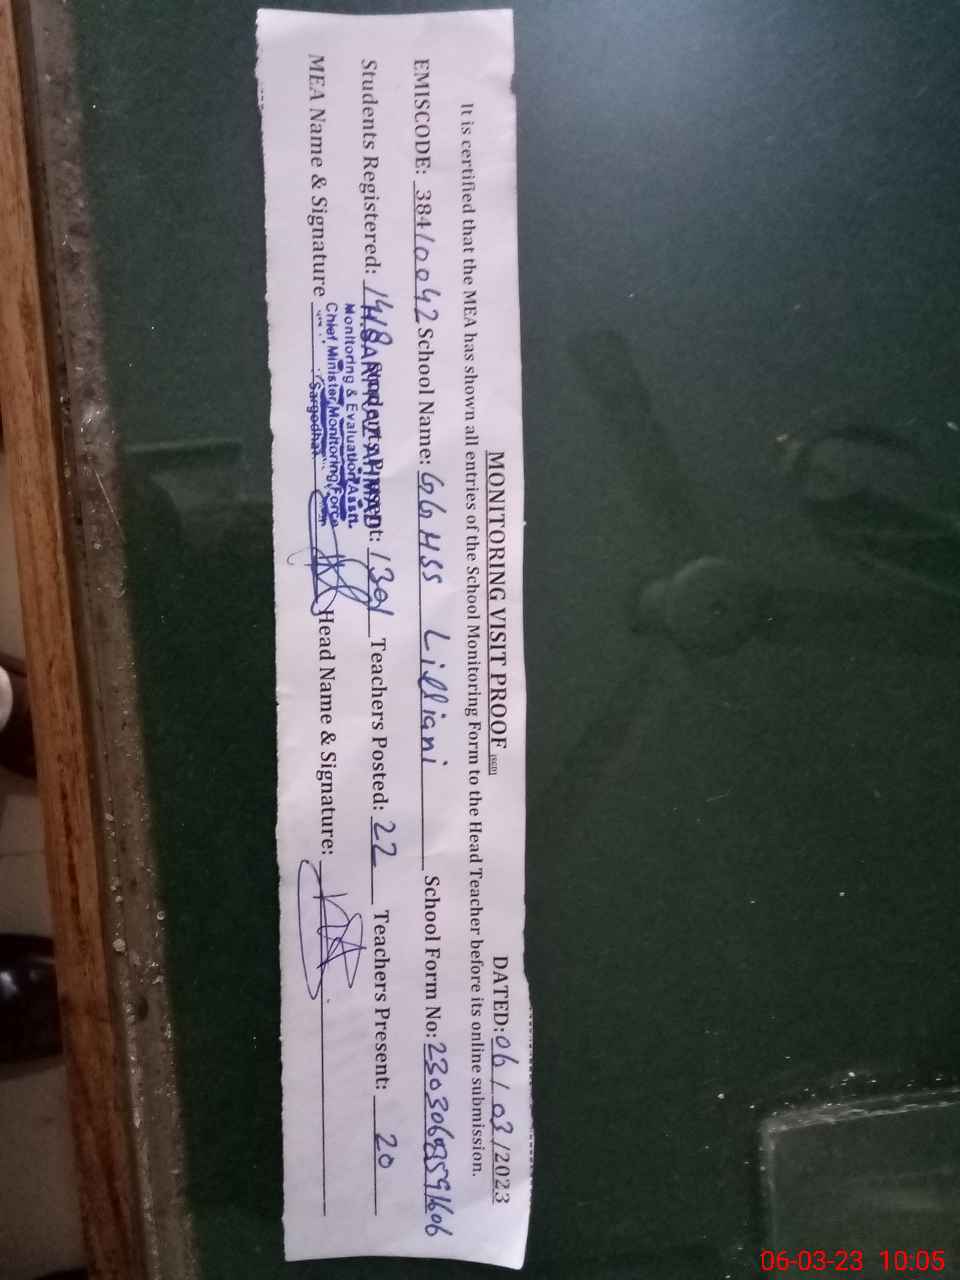 MONITORING VISIT PROOF (SGD) DATED: 06 / 03 /2023
It is certified that the MEA has shown all entries of the School Monitoring Form to the Head Teacher before its online submission.
EMISCODE: 38410042 School Name: GGHSS Lilliani School Form No:
Students Registered: 1418 Students Present: 1301 Teachers Posted: 22 Teachers Present: 20
AHMAD
Monitoring & Evaluation Asstt.
Chief Minister, Monitoring Force
Sargodha
MEA Name & Signature Head Name & Signature:
06-03-23 10:05